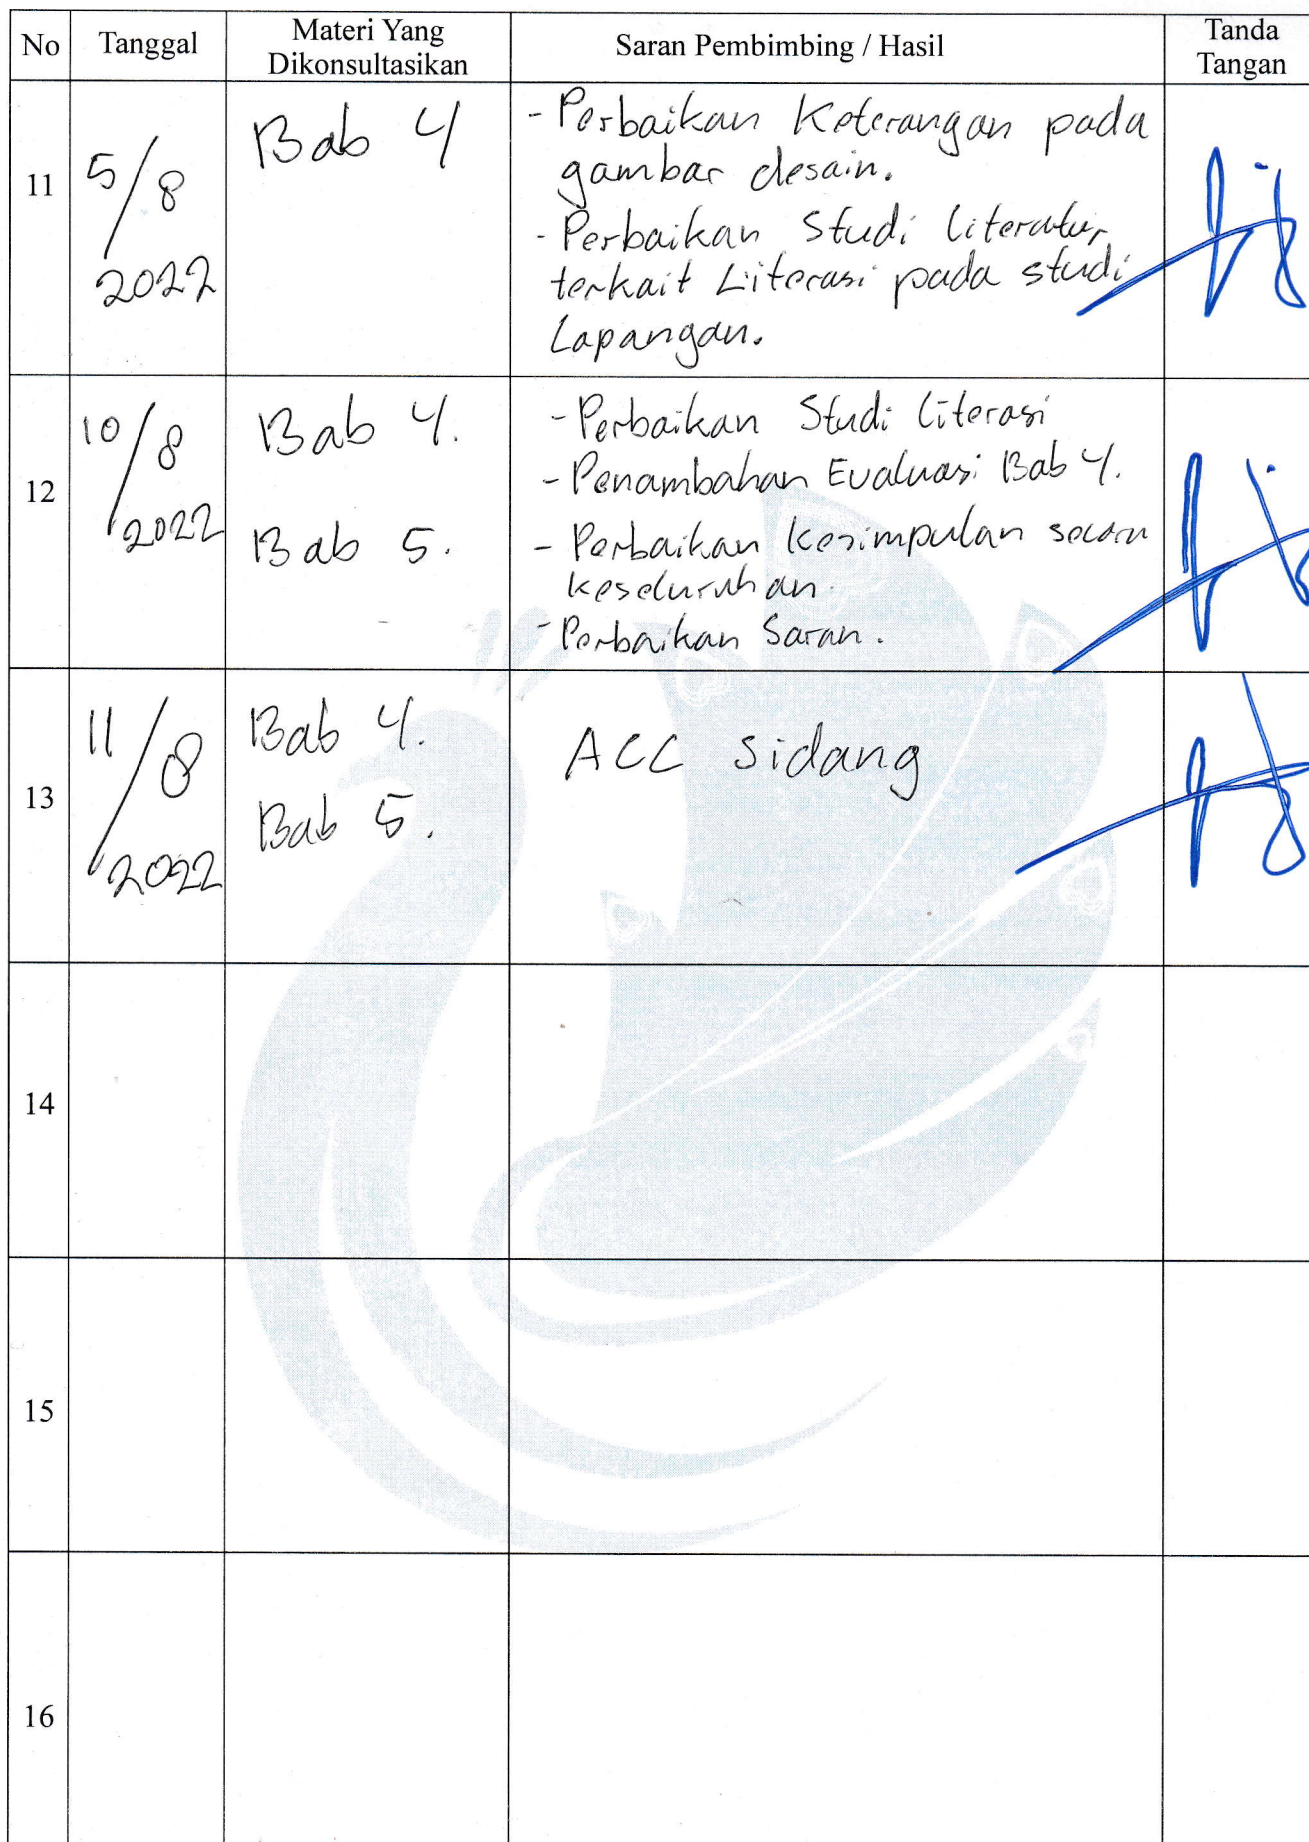 No Tanggal Materi Yang Dikonsultasikan Saran Pembimbing / Hasil Tanda Tangan
11 5/8 2022 Bab 4
- Perbaikan Keterangan pada
gambar desain.
- Perbaikan Studi literatur
terkait Literasi pada studi
Lapangan.
12 10/8 2022 Bab 4.
Bab 5.
- Perbaikan Studi literasi
- Penambahan Evaluasi Bab 4.
- Perbaikan Kesimpulan secara
keseluruhan.
- Perbaikan Saran.
13 11/8 2022 Bab 4.
Bab 5.
ACC Sidang
14
15
16